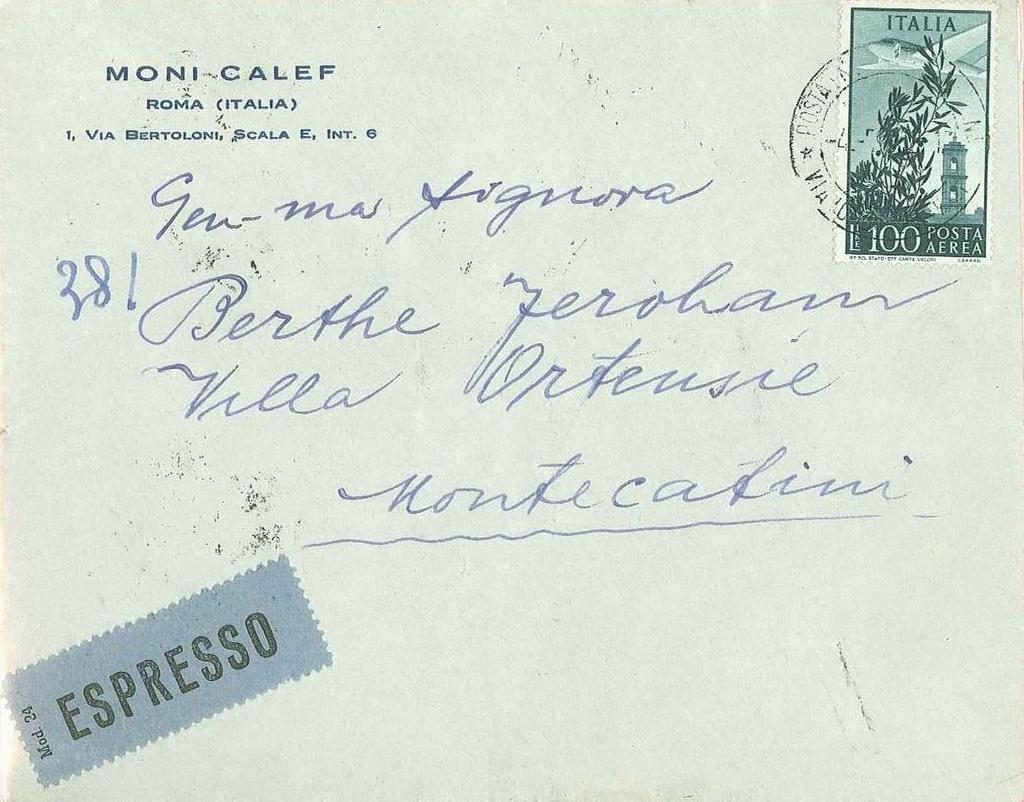 MONI CALEF
ROMA (ITALIA)
1, VIA BERTOLONI, SCALA E, INT. 6
ITALIA
LIRE 100 POSTA AEREA
Gen-ma Signora
381
Berthe Jeroham
Villa Ortensie
Montecatini
ESPRESSO
Mod. 24